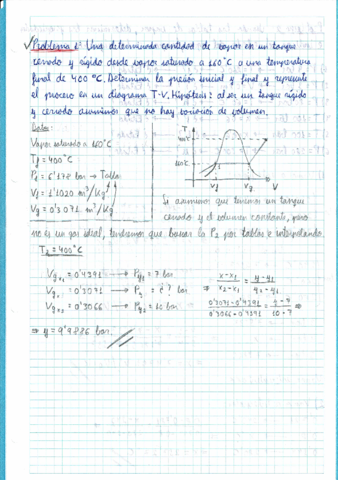 Problema 1: Una determinada cantidad de vapor en un tanque
cerrado y rígido desde vapor saturado a 160°C a una temperatura
final de 400 °C. Determinar la presión inicial y final y represente
el proceso en un diagrama T-V. Hipótesis: al ser un tanque rígido
y cerrado asumimos que no hay variación de volumen.
Datos:
Vapor saturado a 160°C
Tf = 400°C
Pi = 6'178 bar → Tablas
Vf = 1'1020 m³/Kg
Vg = 0'3071 m³/Kg
T
400°C
160°C
Vf
Vg
V
Si asumimos que tenemos un tanque
cerrado y el volumen constante, pero
no es un gas ideal, tendremos que buscar la P2 por tablas e interpolando.
T2 = 400°C
Vg1 = 0'4391 → Pg1 = 7 bar
Vg = 0'3071 → P2 = ¿?
Vg2 = 0'3066 → Pg2 = 10 bar
⇒ (x-x1)/(x2-x1) = (y-y1)/(y2-y1)
(0'3071-0'4391)/(0'3066-0'4391) = (y-7)/(10-7) ⇒
⇒ y = 9'9886 bar.